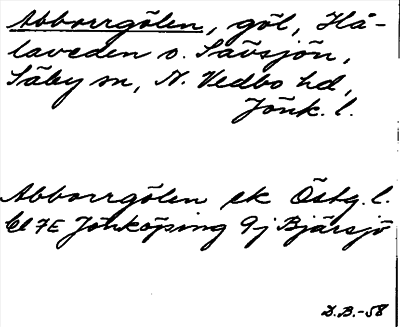 Abborrgölen, göl, Hå-
laveden o. Sävsjön,
Säby sn, N. Vedbo hd,
Jönk. l.
Abborrgölen ek Östg. l.
bl 7E Jönköping 9j Bjärsjö
D.B.-58